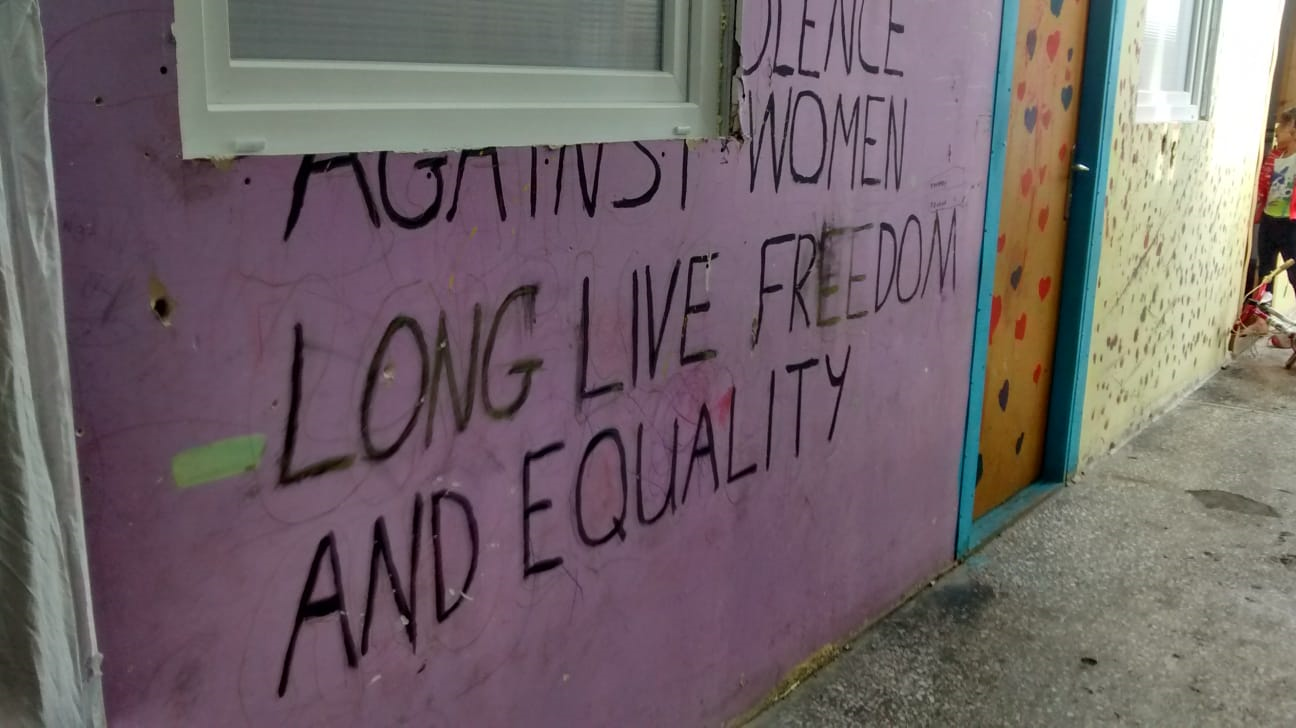 OLENCE
AGAINST WOMEN
LONG LIVE FREEDOM
AND EQUALITY